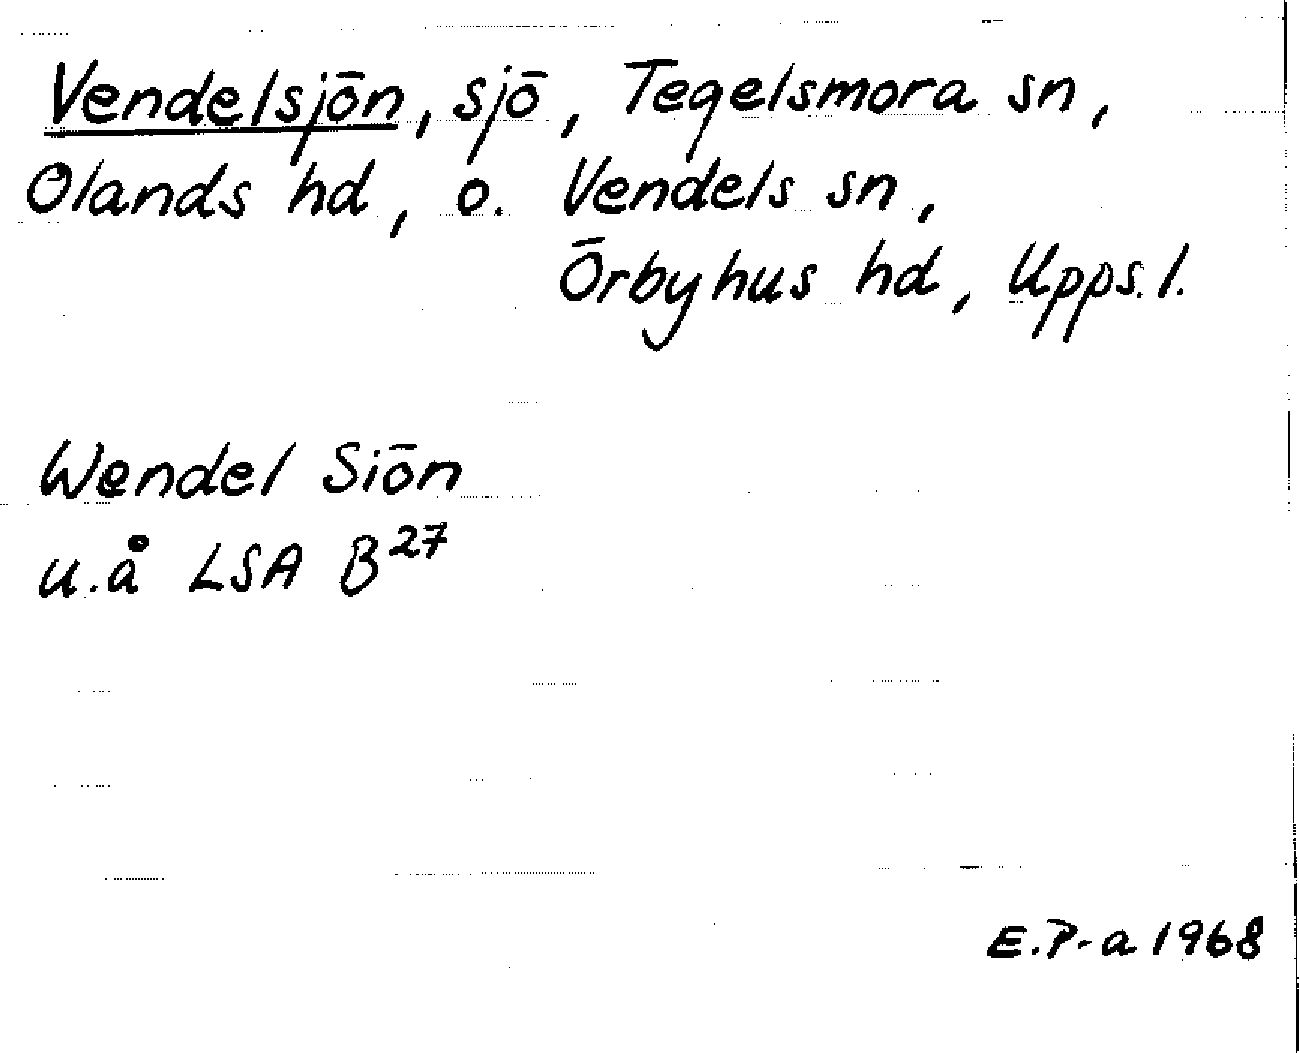 Vendelsjön, sjö, Tegelsmora sn,
Olands hd, o. Vendels sn,
Örbyhus hd, Upps. l.
Wendel Siön
u.å LSA B27
E.P-a 1968